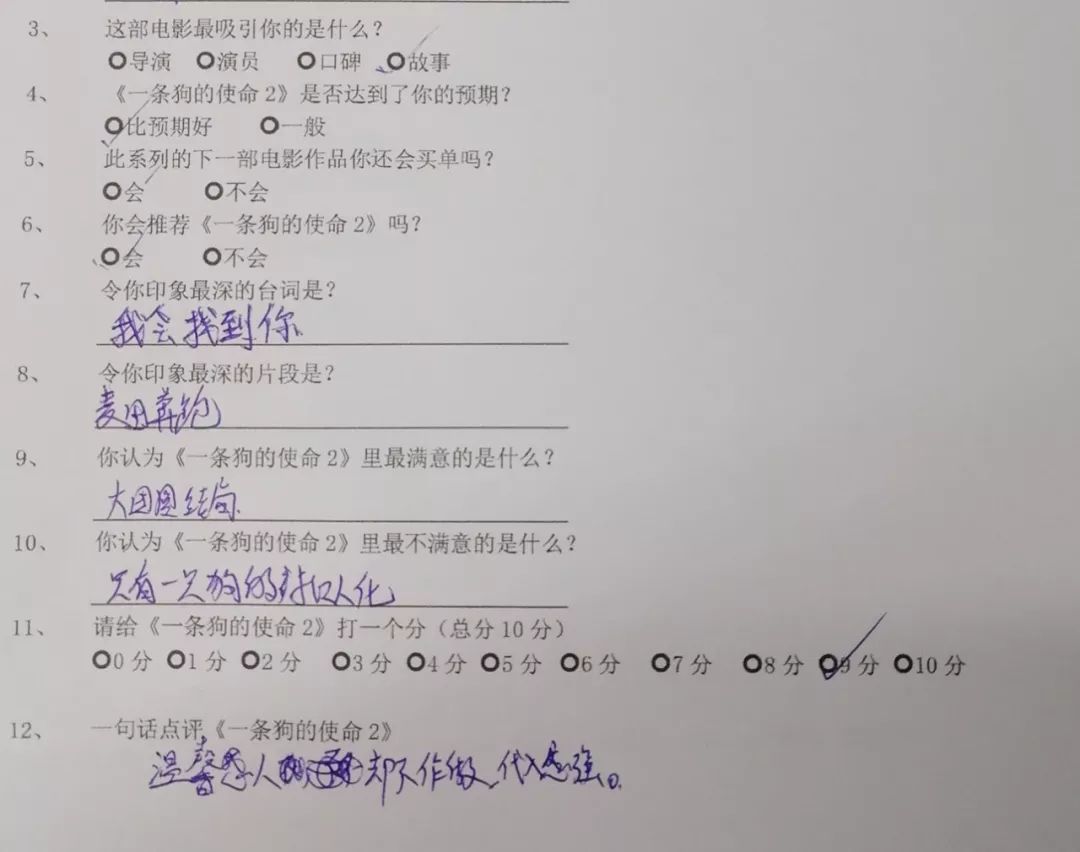 3、 这部电影最吸引你的是什么？
导演 演员 口碑 故事
4、 《一条狗的使命2》是否达到了你的预期？
比预期好 一般
5、 此系列的下一部电影作品你还会买单吗？
会 不会
6、 你会推荐《一条狗的使命2》吗？
会 不会
7、 令你印象最深的台词是？
我会找到你
8、 令你印象最深的片段是？
麦田奔跑
9、 你认为《一条狗的使命2》里最满意的是什么？
大团圆结局
10、 你认为《一条狗的使命2》里最不满意的是什么？
只有一只狗的
11、 请给《一条狗的使命2》打一个分（总分10分）
0分 1分 2分 3分 4分 5分 6分 7分 8分 9分 10分
12、 一句话点评《一条狗的使命2》
温馨感人 却不作做，代入感强。